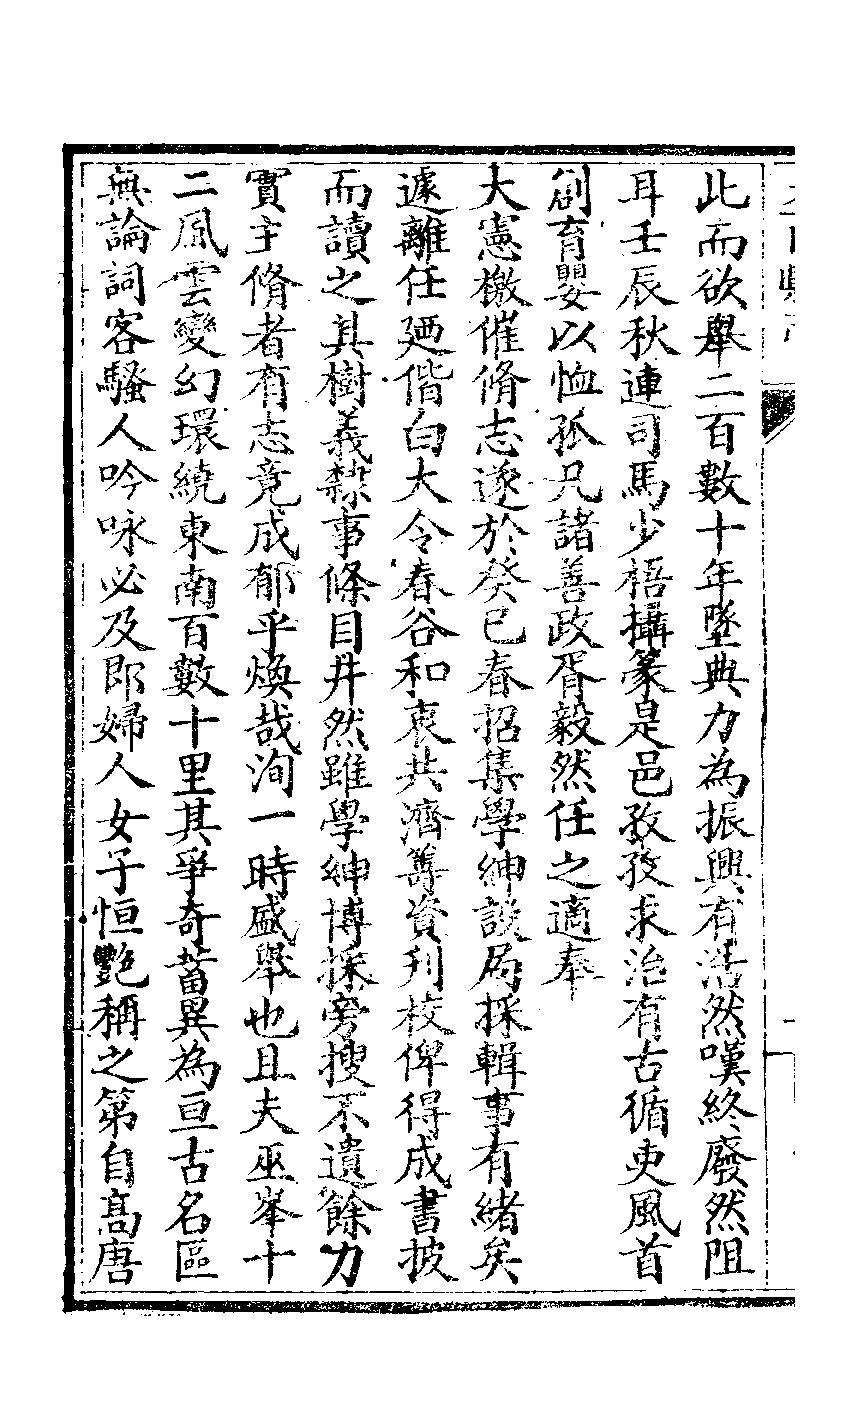 此而欲舉二百數十年墜典力為振興有浩然嘆終廢然阻
耳壬辰秋連司馬少梧攝篆是邑孜孜求治有古循吏風首
創育嬰以恤孤凡諸善政胥毅然任之適奉
大憲檄催脩志遂於癸巳春招集學紳設局採輯事有緒矣
遽離任廼偕白大令春谷和衷共濟籌資刋校俾得成書披
而讀之其樹義𣜩事條目井然雖學紳博採旁搜不遺餘力
實主脩者有志竟成郁乎煥哉洵一時盛舉也且夫巫峯十
二風雲變幻環繞東南百數十里其爭奇蓄異為亘古名區
無論詞客騷人吟咏必及即婦人女子恒艷稱之第自高唐